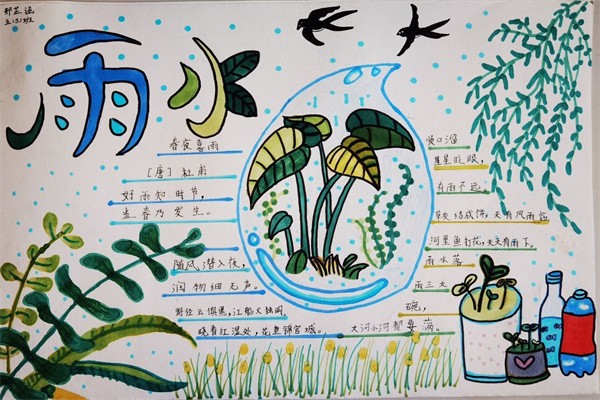 雨水
春夜喜雨
[唐] 杜甫
好雨知时节,
当春乃发生。
随风潜入夜,
润物细无声。
野径云俱黑,江船火独明。
晓看红湿处,花重锦官城。
顺口溜
星星眨眼,
有雨不远。
草灰结成饼,天有风雨临
河里鱼打花,天天有雨下。
雨水落
雨三大
碗,
大河小河都要满。